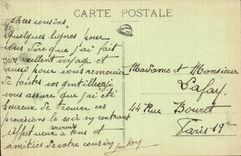 CARTE POSTALE
Chers cousins,
Quelques lignes pour
vous dire que j'ai fait
excellent voyage et
aussi pour vous remercier
de toutes vos
vous assure que j'ai été
heureux de trouver ces
provisions le soir en rentrant
à tous et
amitiés de votre cousin
Madame et Monsieur
Lafay
44 Rue Bouret
Paris 19e